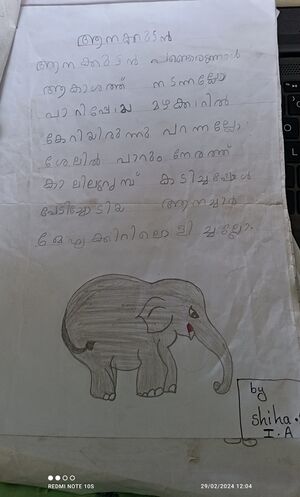 ആനക്കുട്ടൻ
ആനക്കുട്ടൻ പണ്ടൊരുനാൾ
ആകാശത്ത് നടന്നല്ലോ
പാറിപ്പോയ മഴക്കാറിൽ
കേറിയിരുന്നു പറന്നല്ലോ.
ശേലിൽ പാറും നേരത്ത്
കാലിലുറുമ്പ് കടിച്ചപ്പോൾ
പേടിച്ചോടിയ ആനച്ചാർ
മേഘക്കീറിലൊളിച്ചല്ലോ.
by
shiha.
I.A
REDMI NOTE 10S
29/02/2024 12:04